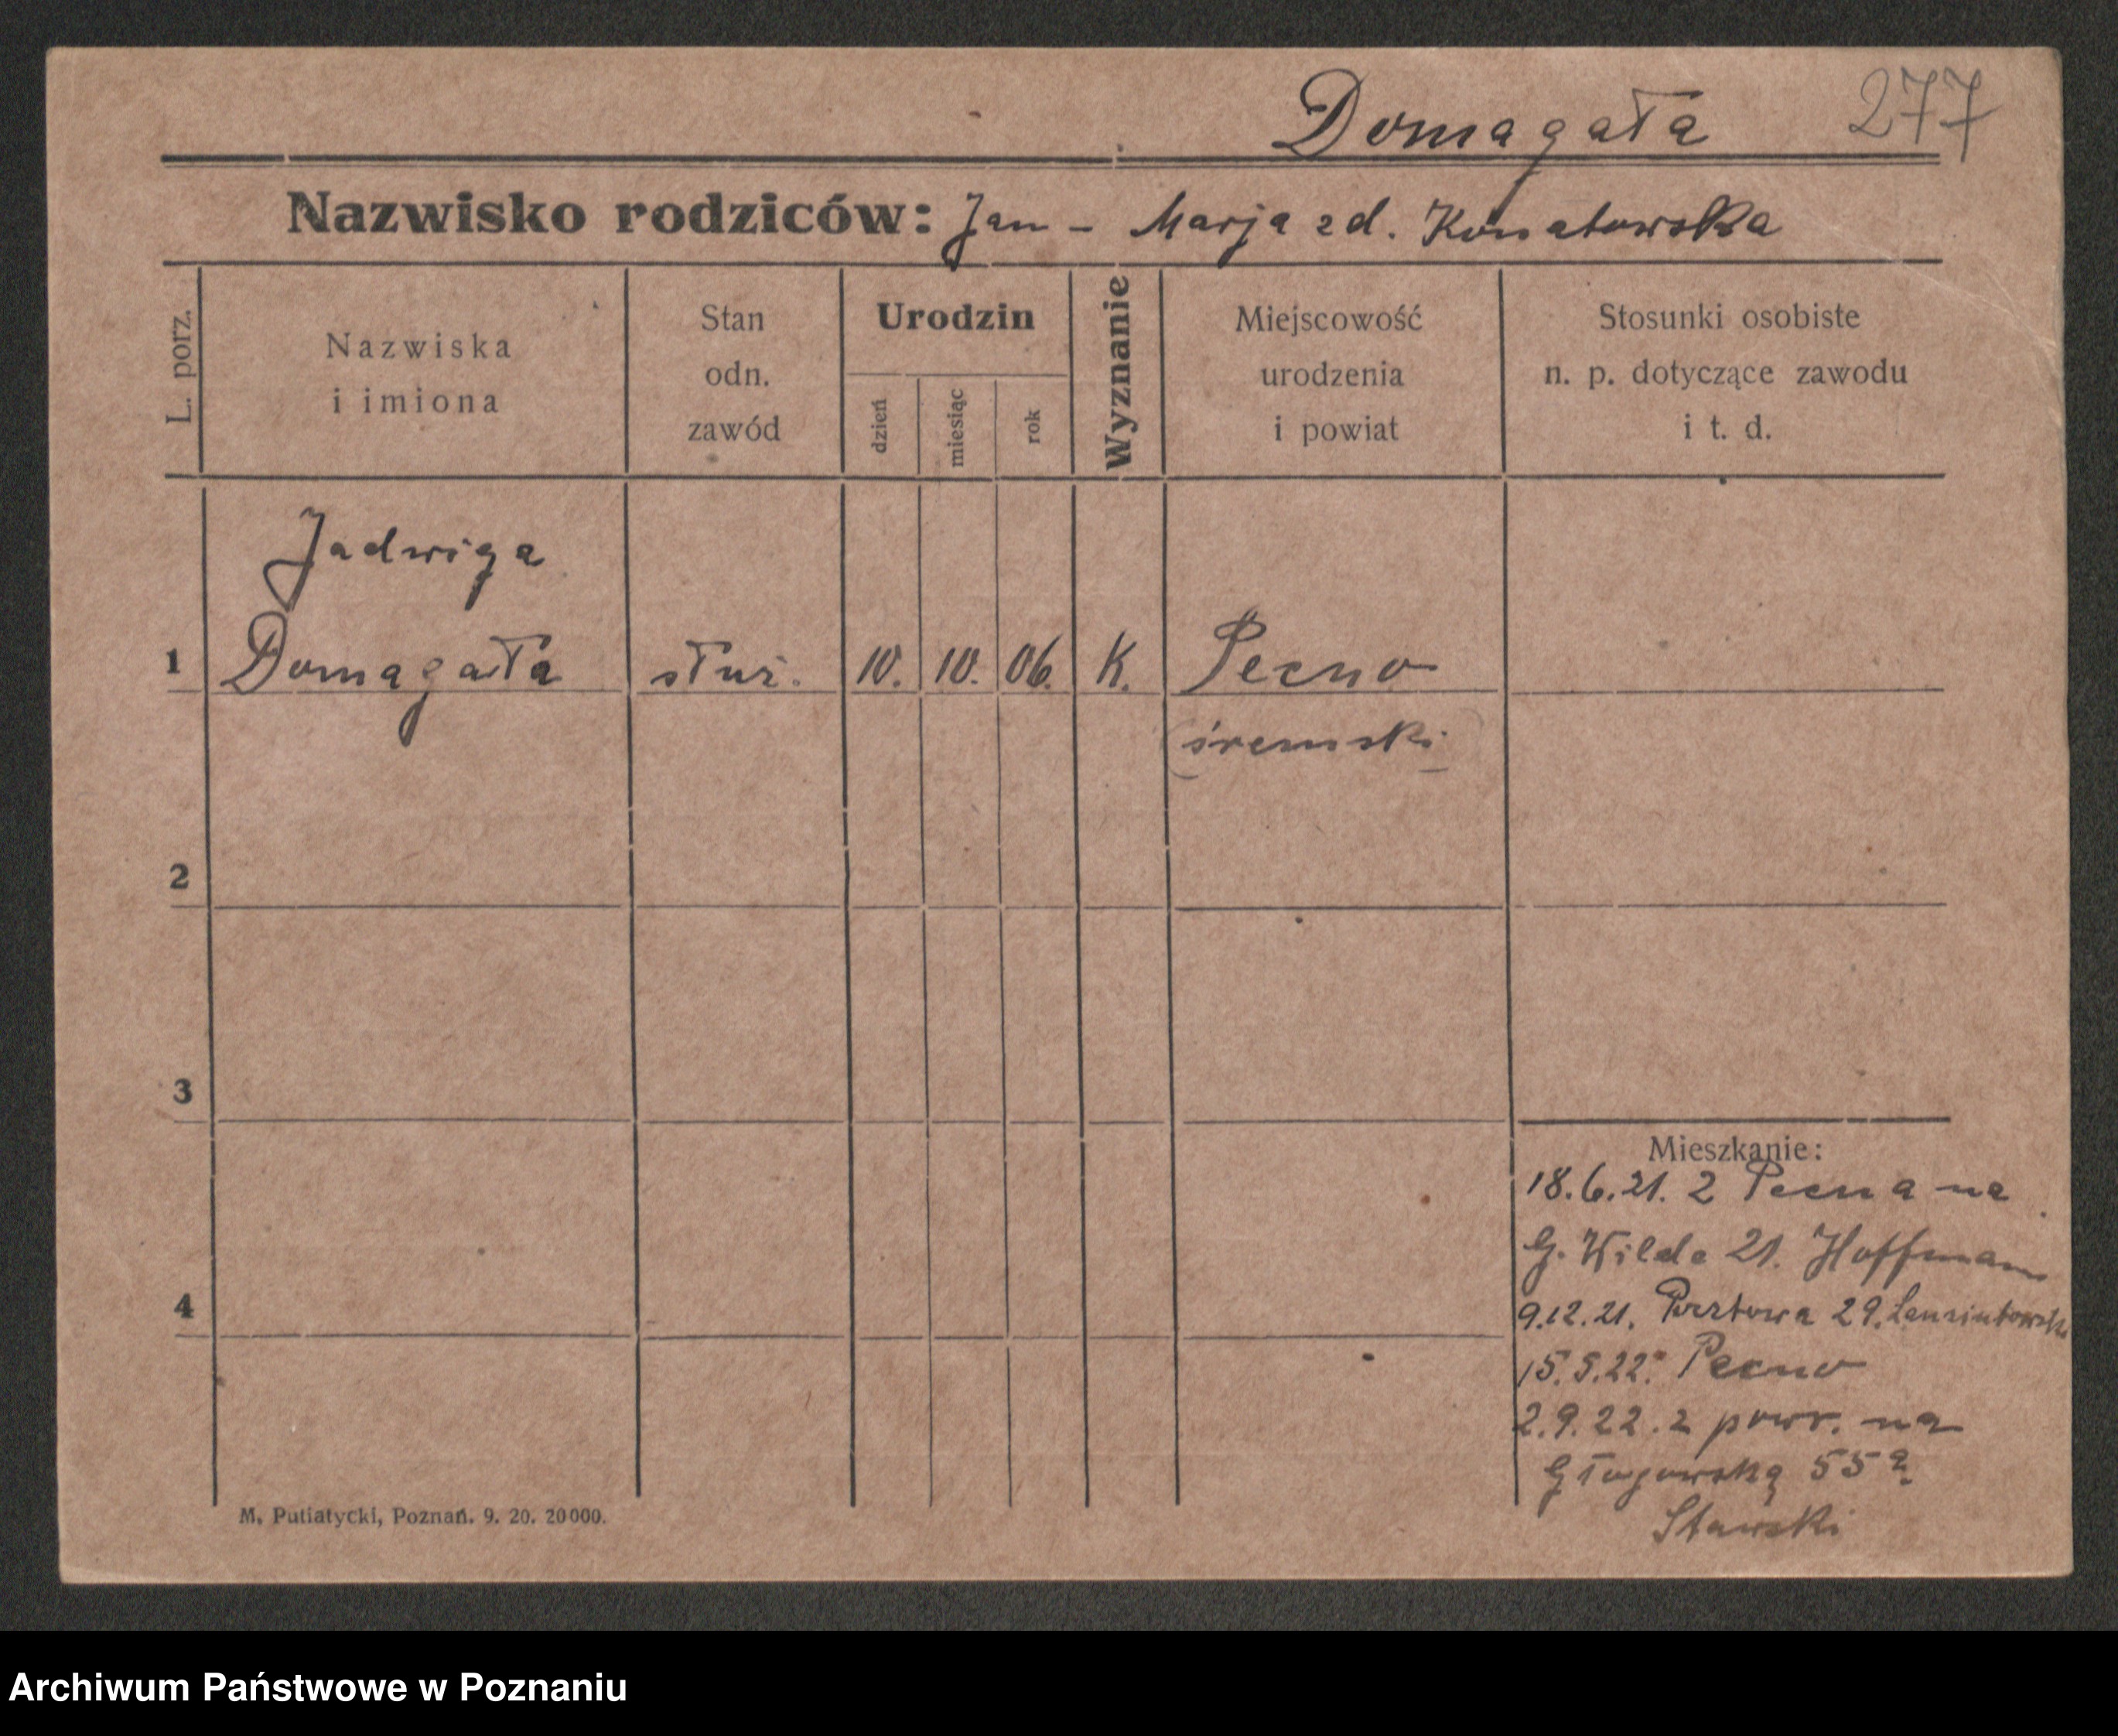 Domagała 277
Nazwisko rodziców: Jan - Marja zd. Konatowska
L. porz.
Nazwiska
i imiona
Stan
odn.
zawód
Urodzin
dzień
miesiąc
rok
Wyznanie
Miejscowość
urodzenia
i powiat
Stosunki osobiste
n. p. dotyczące zawodu
i t. d.
Jadwiga
1 Domagała służ. 10. 10. 06. K. Pecno
(śremski)
2
3
4
Mieszkanie:
18.6.21. z Pecna na
G. Wilde 21. Hoffmann
9.12.21. Pocztowa 29.
15.5.22. Pecno
2.9.22. z powr. na
Głogowską 55
Stawski
M. Putiatycki, Poznań. 9. 20. 20000.
Archiwum Państwowe w Poznaniu